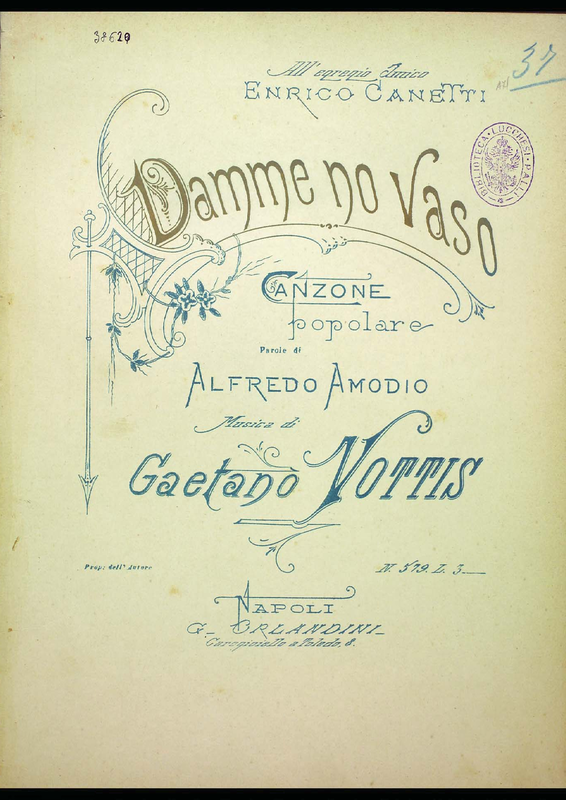 38620
37
All'egregio Amico
ENRICO CANETTI
BIBLIOTECA LUCCHESI-PALLI
Damme no vaso
CANZONE
popolare
Parole di
ALFREDO AMODIO
Musica di
Gaetano NOTTIS
Prop: dell'Autore
N. 579. L. 3
NAPOLI
G. ORLANDINI
Carogioiello a Toledo, 8.